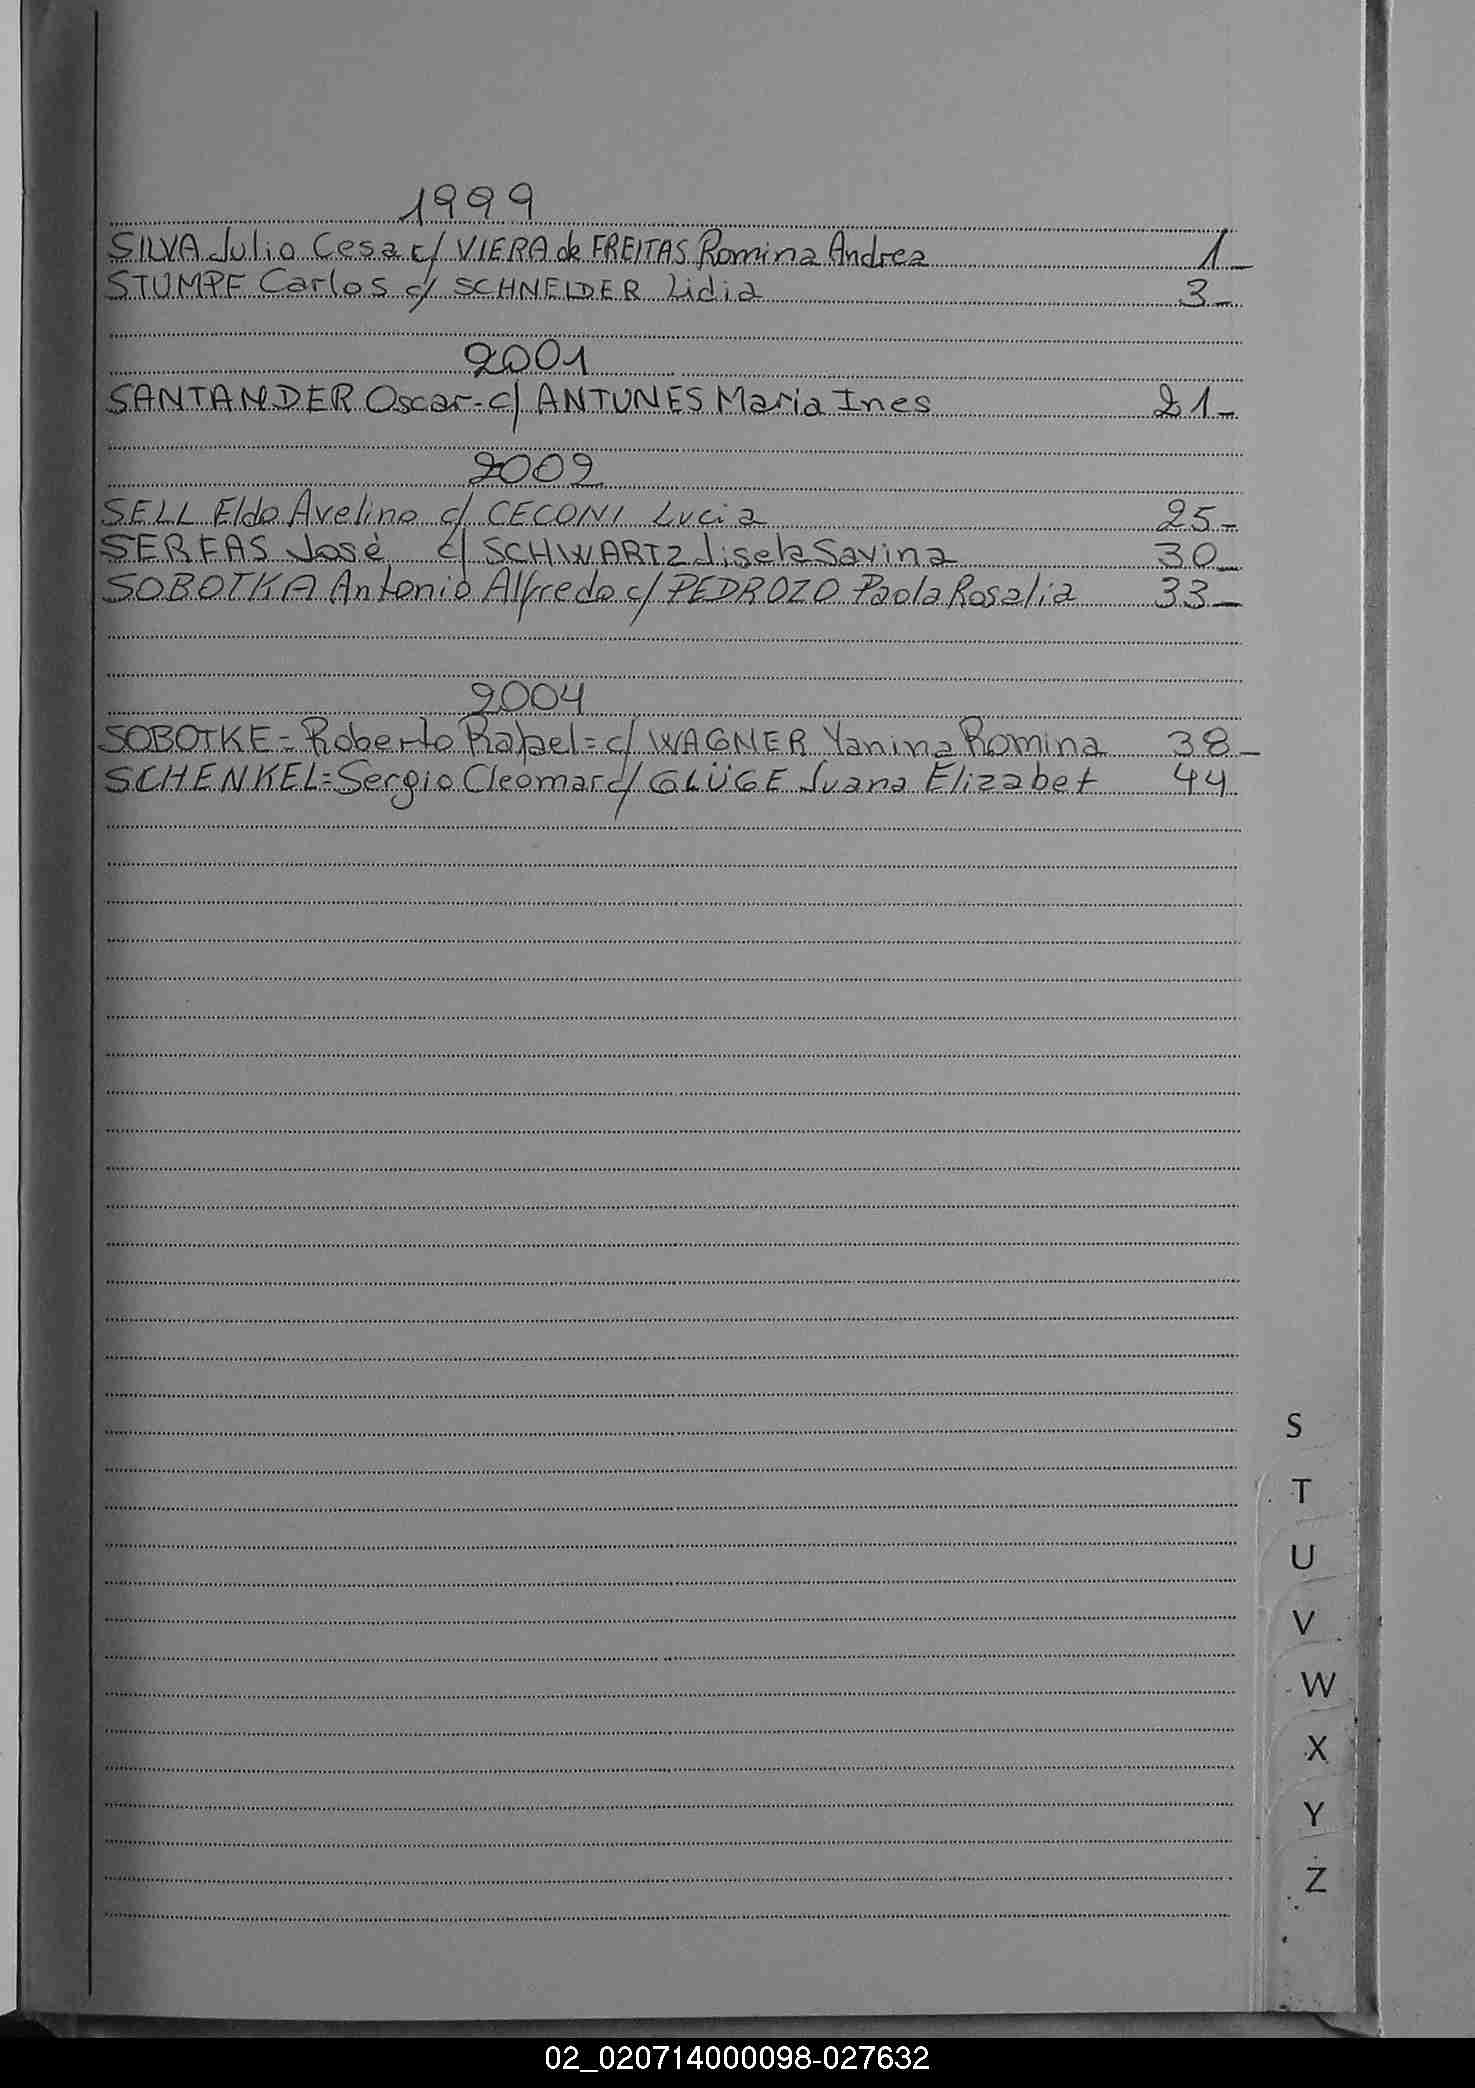 1999
SILVA Julio Cesa c/ VIERA de FREITAS Romina Andrea 1-
STUMPF Carlos c/ SCHNEIDER Lidia 3-
2001
SANTANDER Oscar- c/ ANTUNES Maria Ines 21-
2002
SELL Eldo Avelino c/ CECONI Lucia 25-
SEREAS José c/ SCHWARTZ Jisela Savina 30-
SOBOTKA Antonio Alfredo c/ PEDROZO Paola Rosalia 33-
2004
SOBOTKE = Roberto Rafael = c/ WAGNER Yanina Romina 38-
SCHENKEL = Sergio Cleomar c/ GLÜGE Ivana Elizabet 44
S
T
U
V
W
X
Y
Z
02_020714000098-027632